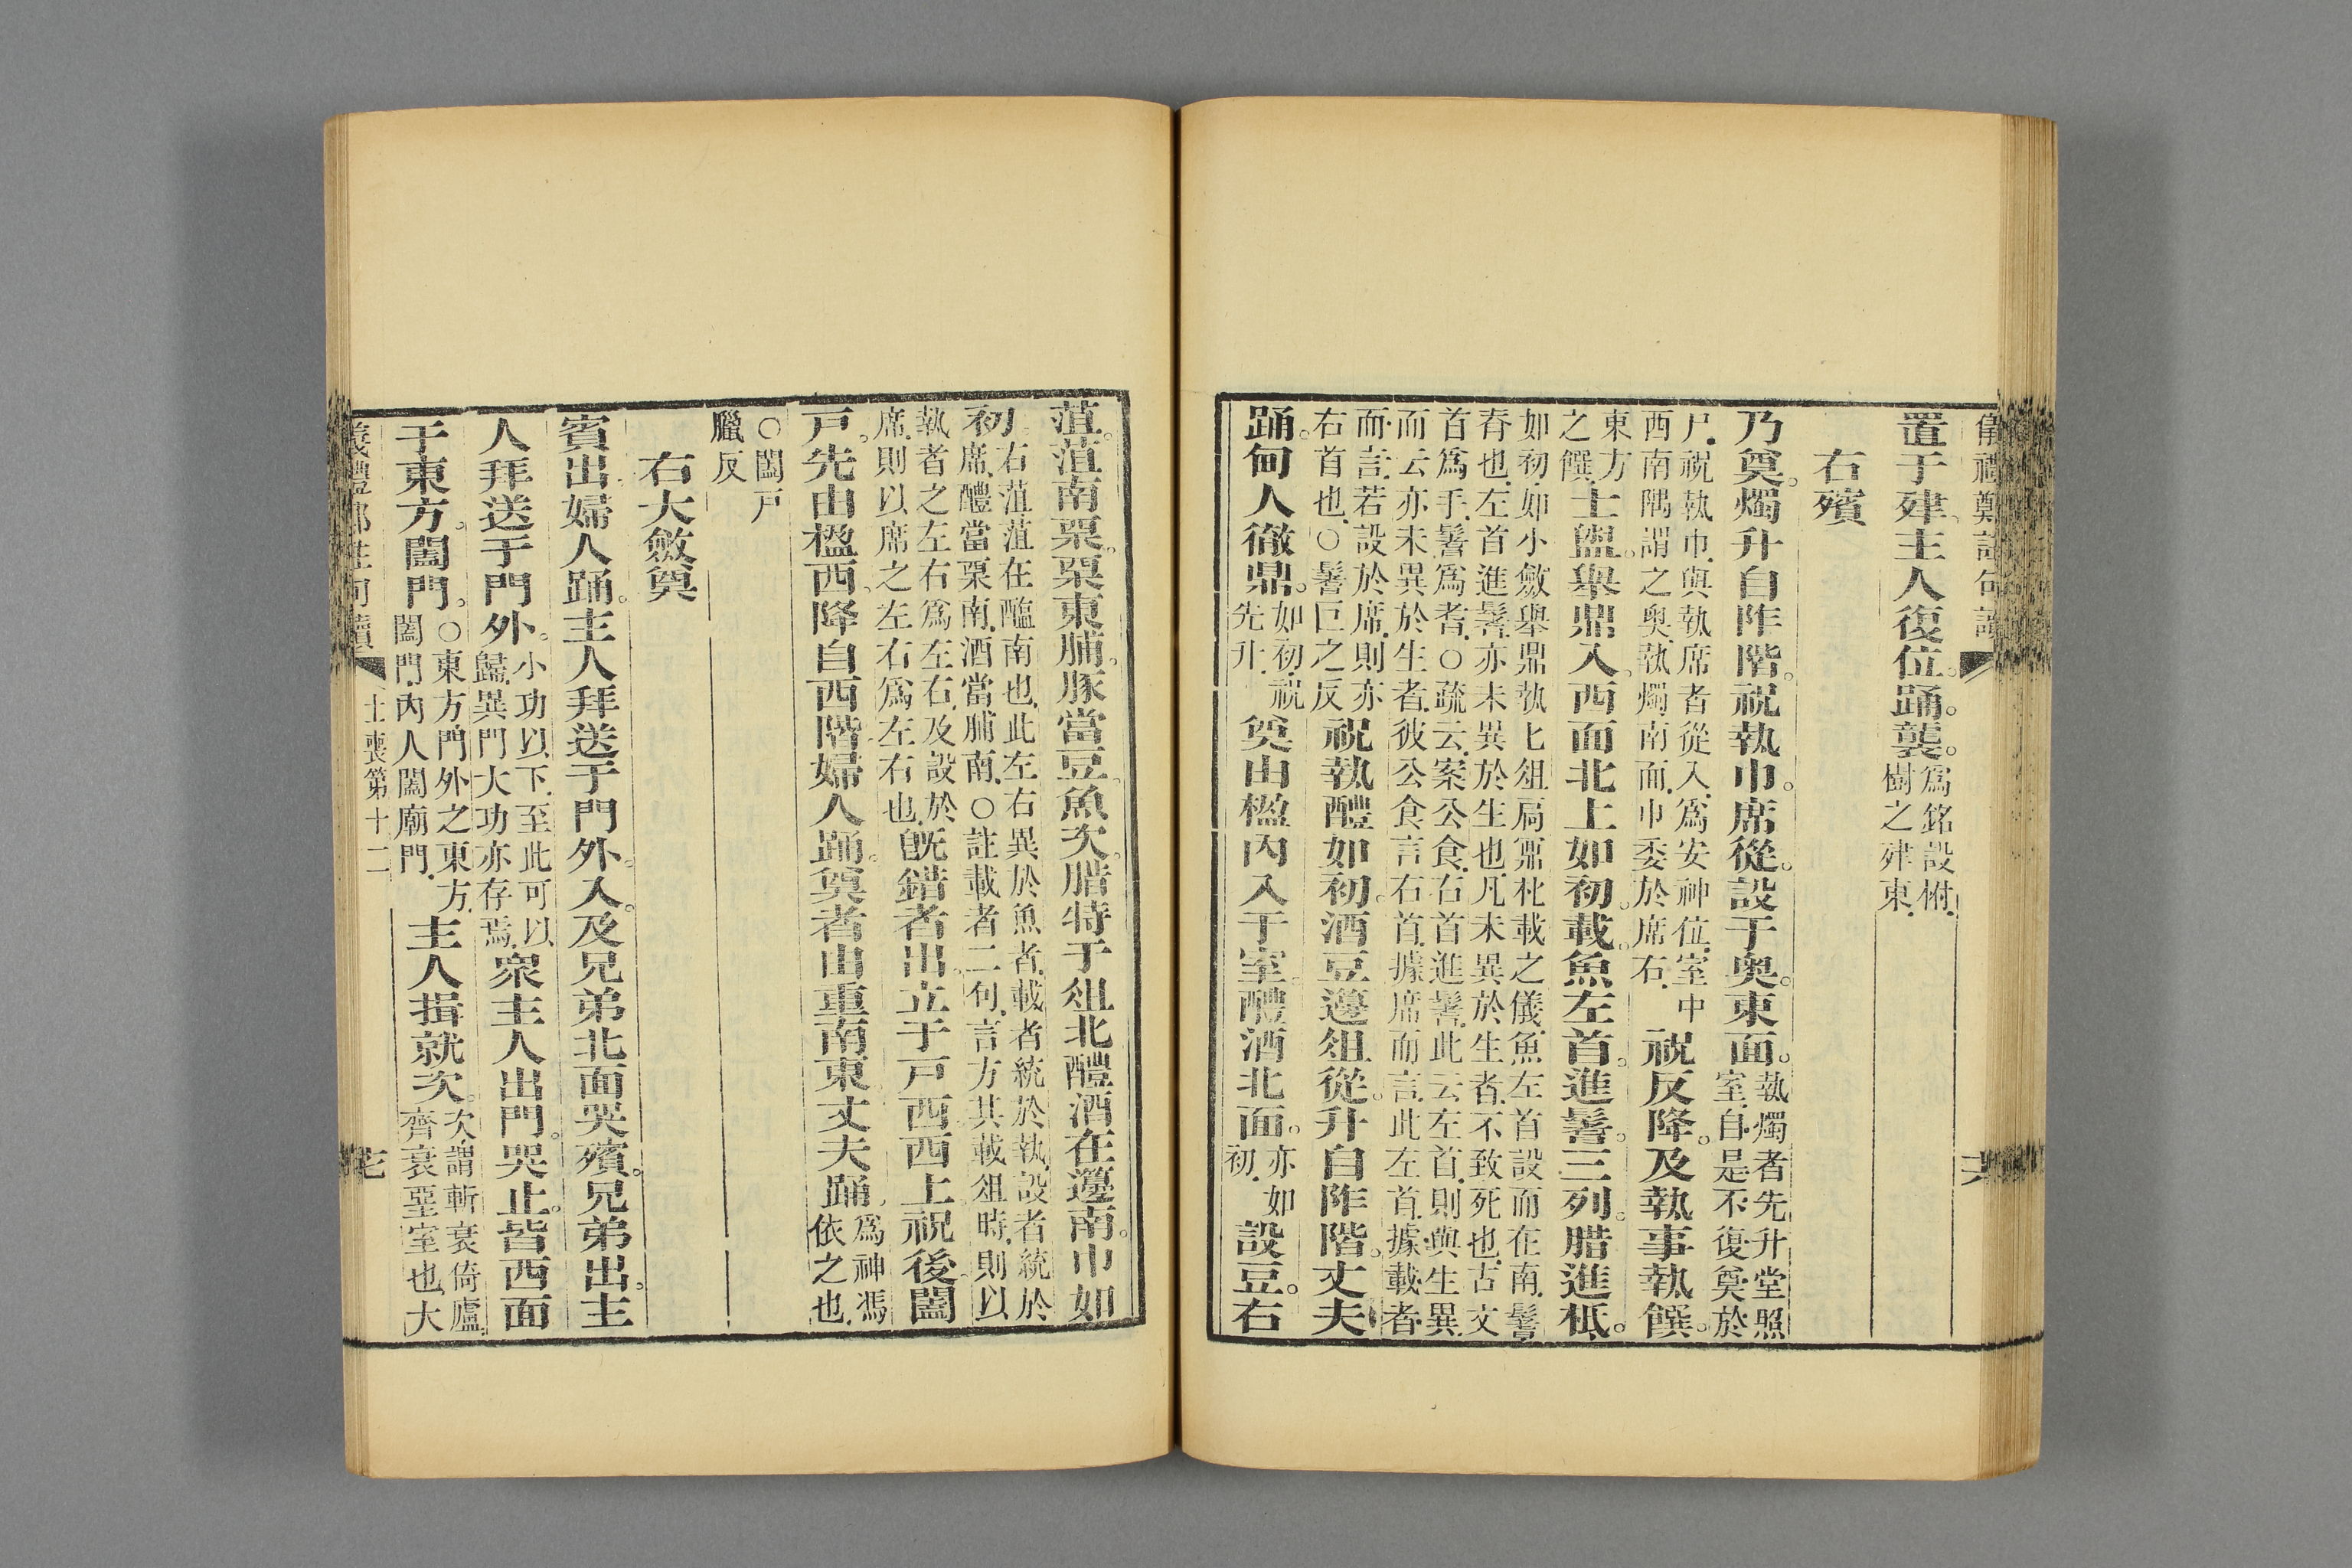 儀禮鄭註句讀 十六
置于肂主人復位。踊。襲。
爲銘設柎.
樹之肂東.
右殯
乃奠。燭升自阼階。祝執巾。席從。設于奥。東面。
執燭者先升堂照
室.自是不復奠於
尸.祝執巾.與執席者從入.爲安神位.室中
西南隅謂之奥.執燭南面.巾委於席右.
祝反降。及執事執饌。
東方
之饌.
士盥。舉鼎入。西面北上如初。載。魚左首。進鬐。三列。腊進柢。
如初.如小斂舉鼎執匕俎扃鼏朼載之儀.魚左首設而在南.鬐
脊也.左首進鬐.亦未異於生也.凡未異於生者.不致死也.古文
首爲手.鬐爲耆.○疏云.案公食.右首進鬐.此云左首.則與生異.
而云亦未異於生者.彼公食言右首.據席而言.此左首.據載者
而言.若設於席.則亦
右首也.○鬐巨之反
祝執醴如初。酒豆籩俎從。升自阼階。丈夫
踊。甸人徹鼎。
如初.祝
先升.
奠由楹内入于室。醴酒北面。
亦如
初.
設豆。右
菹。菹南栗。栗東脯。豚當豆。魚次。腊特于俎北醴酒在籩南。巾如
初
右菹.菹在醢南也.此左右異於魚者.載者統於執.設者統於
席.醴當栗南.酒當脯南.○註載者二句.言方其載俎時.則以
執者之左右爲左右.及設於
席.則以席之左右爲左右也.
旣錯者出。立于戸西。西上。祝後。闔
戸。先由楹西。降自西階。婦人踊。奠者由重南東。丈夫踊。
爲神馮
依之也.
○闔戸
臘反
右大斂奠
賓出。婦人踊。主人拜送于門外。入。及兄弟北面哭殯。兄弟出。主
人拜送于門外。
小功以下.至此可以
歸.異門大功亦存焉.
衆主人出門。哭止。皆西面
于東方。闔門。
○東方.門外之東方.
闔門.内人闔廟門.
主人揖就次。
次.謂斬衰倚廬.
齊衰堊室也.大
士喪第十二